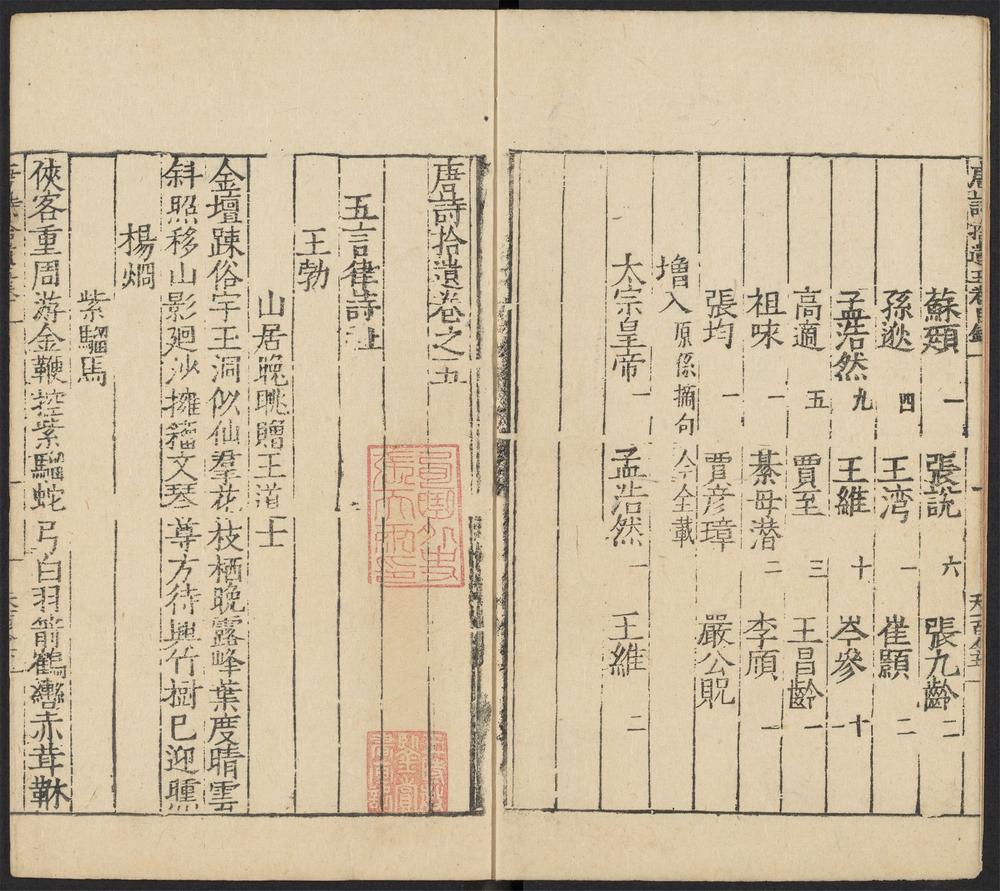 唐詩拾遺五卷目錄
蘇頲 一 張說 六 張九齡 二
孫逖 四 王灣 一 崔顥 二
孟浩然 九 王維 十 岑參 十
高適 五 賈至 三 王昌齡 一
祖咏 一 綦毋潛 二 李頎 一
張均 一 賈彥璋 嚴公貺
增入 原係摘句 今全載
太宗皇帝 一 孟浩然 一 王維 二
唐詩拾遺卷之五
五言律詩
王勃
山居晚眺贈王道士
金壇踈俗宇王洞似仙羣花枝栖晚露峰葉度晴雲
斜照移山影廻沙擁籀文琴尊方待興竹樹已迎曛
楊烱
紫騮馬
俠客重周游金鞭控紫騮蛇弓白羽箭鶴轡赤茸鞦